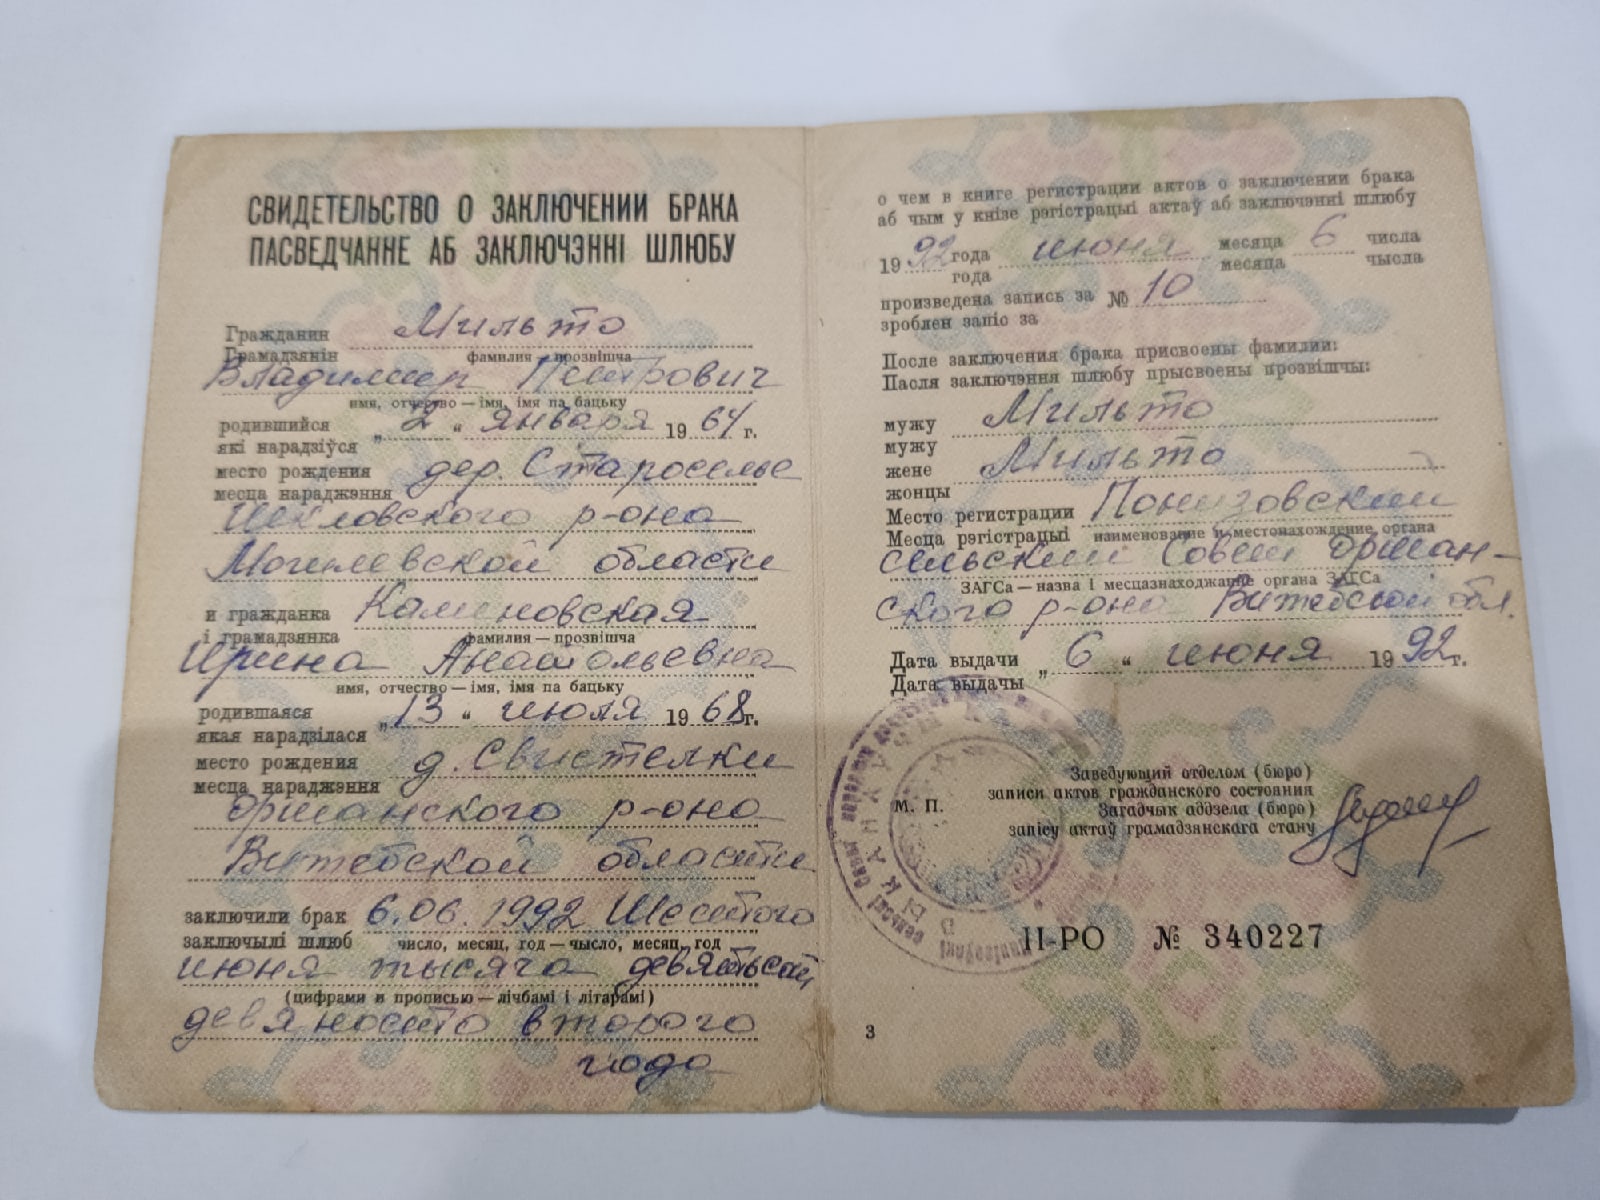 СВИДЕТЕЛЬСТВО О ЗАКЛЮЧЕНИИ БРАКА
ПАСВЕДЧАННЕ АБ ЗАКЛЮЧЭННІ ШЛЮБУ
Гражданин Мильто
Грамадзянін фамилия — прозвішча
Владимир Петрович
имя, отчество — імя, імя па бацьку
родившийся „2“ января 1964 г.
які нарадзіўся
место рождения дер. Староселье
месца нараджэння
Шкловского р-она
Могилевской области
и гражданка Калиновская
і грамадзянка фамилия — прозвішча
Ирина Анатольевна
имя, отчество — імя, імя па бацьку
родившаяся „13“ июля 1968 г.
якая нарадзілася
место рождения д. Свистелки
месца нараджэння
Оршанского р-она
Витебской области
заключили брак 6.06.1992 Шестого
заключылі шлюб число, месяц, год — чысло, месяц, год
июня тысяча девятьсот
(цифрами и прописью — лічбамі і літарамі)
девяносто второго
года
о чем в книге регистрации актов о заключении брака
аб чым у кнізе рэгістрацыі актаў аб заключэнні шлюбу
1992 года июня месяца 6 числа
года месяца чысла
произведена запись за № 10
зроблен запіс за
После заключения брака присвоены фамилии:
Пасля заключэння шлюбу прысвоены прозвішчы:
мужу Мильто
мужу
жене Мильто
жонцы
Место регистрации Понизовский
Месца рэгістрацыі наименование и местонахождение органа
сельский Совет Оршан-
ЗАГСа — назва і месцазнаходжанне органа ЗАГСа
ского р-она Витебской обл.
Дата выдачи „6“ июня 1992 г.
Дата выдачы
Заведующий отделом (бюро)
М. П. записи актов гражданского состояния
Загадчык аддзела (бюро)
запісу актаў грамадзянскага стану
II-РО № 340227
3